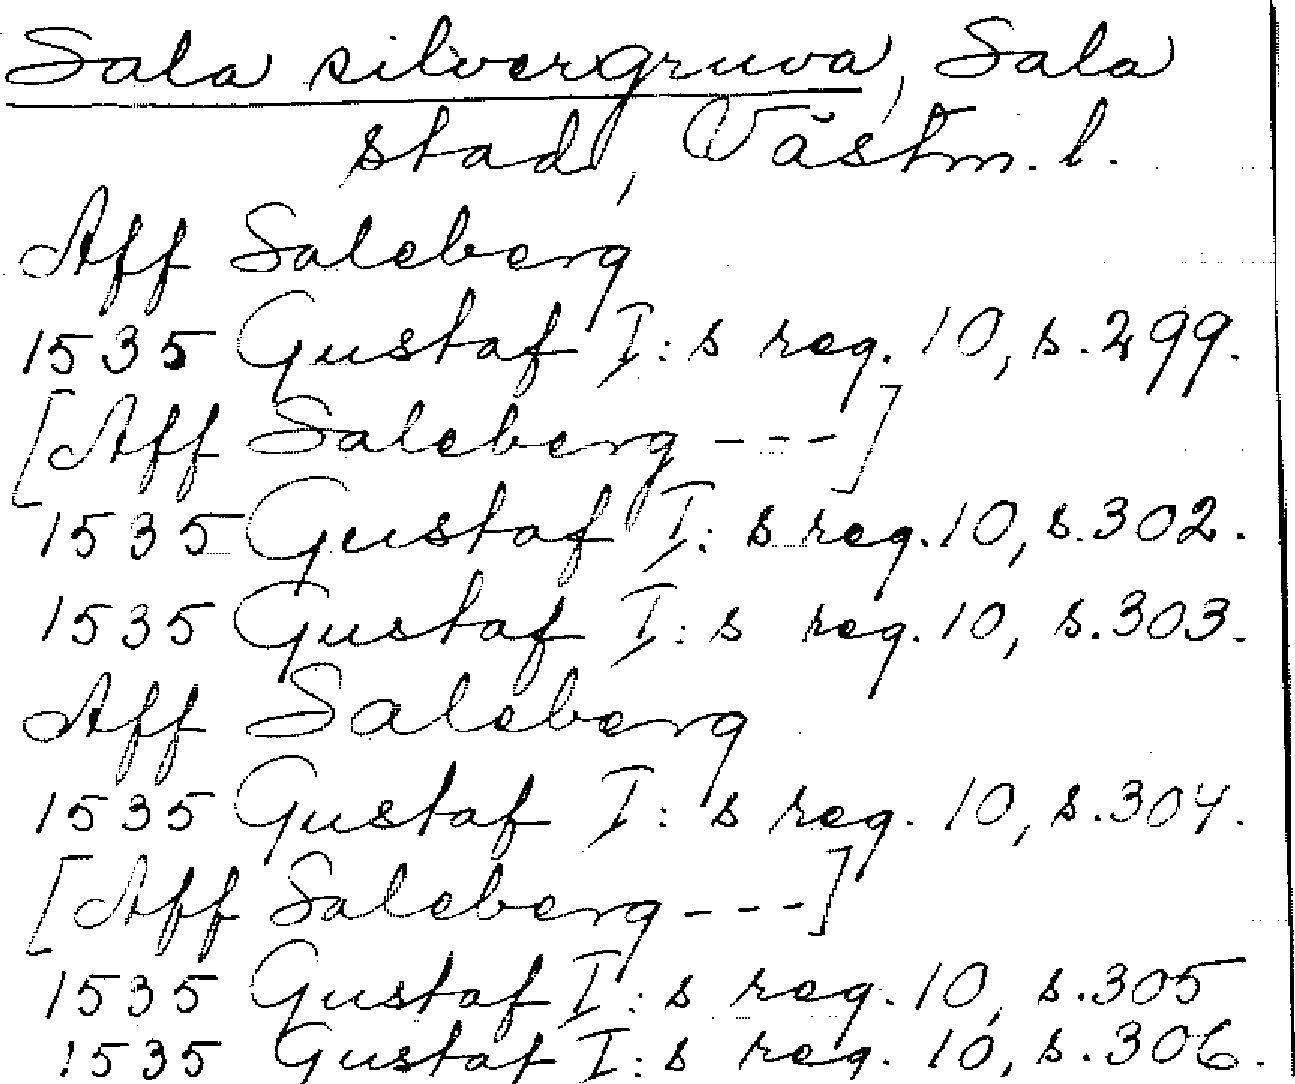 Sala silvergruva, Sala
stad, Västm. l.
Aff Saleberg
1535 Gustaf I:s reg. 10, s.299.
[Aff Saleberg ---]
1535 Gustaf I:s reg. 10, s.302.
1535 Gustaf I:s reg. 10, s.303.
Aff Saleberg
1535 Gustaf I:s reg. 10, s.304.
[Aff Saleberg ---]
1535 Gustaf I:s reg. 10, s.305
1535 Gustaf I:s reg. 10, s.306.